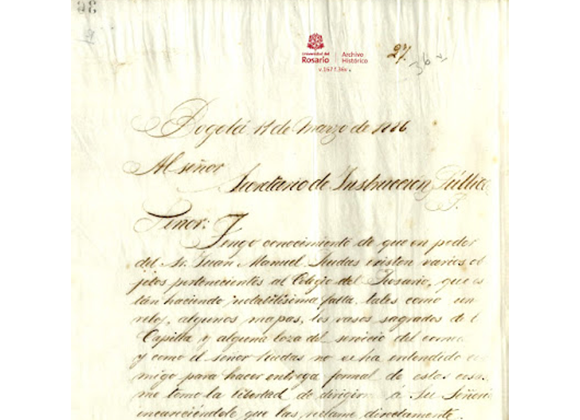 Universidad del
Rosario
Archivo
Histórico
27.
Bogotá 17 de Marzo de 1886
Al señor
Secretario de Instruccion Públic
Señor:
Tengo conocimiento de que en poder
del Sr. Juan Manuel Rudas existen varios ob
jetos pertenecientes al Colegio del Rosario, que es
tán haciendo notabilísima falta, tales como un
reloj, algunos mapas, los vasos sagrados de l
Capilla y alguna loza del servicio del come
y como el señor Rudas no se ha entendido co
migo para hacer entrega formal de estos
me tomo la libertad de dirigirme á Su Señorí
que las reclame directamente